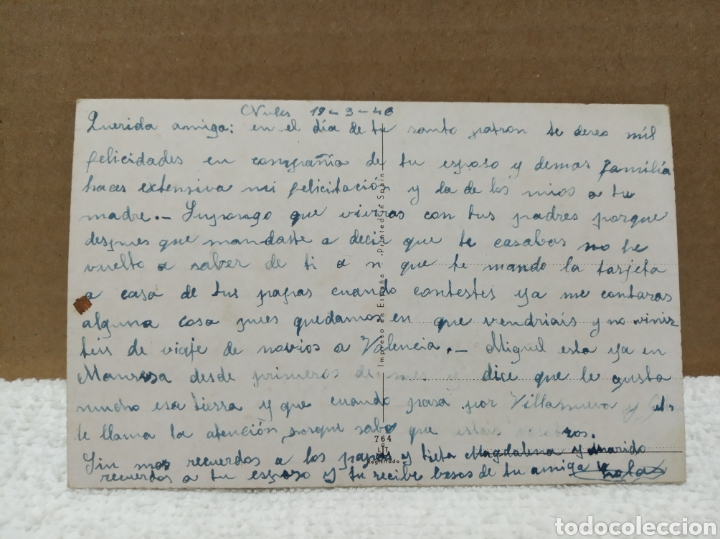 Nules 19-3-46
Querida amiga: en el día de tu santo patron te deseo mil
felicidades en compañia de tu esposo y demas familia
haces extensiva mi felicitación y la de los mios a tu
madre.- Supongo que viviras con tus padres porque
despues que mandaste a decir que te casabas no he
vuelto a saber de ti a si que te mando la tarjeta
a casa de tus papas cuando contestes ya me contaras
alguna cosa pues quedamos en que vendriais y no vinis
teis de viaje de novios a Valencia.- Miguel esta ya en
Manresa desde primeros de mes y dice que le gusta
mucho esa tierra y que cuando pasa por Villanueva y
le llama la atención porque sabe que estais
Sin mas recuerdos a los papas y tieta Magdalena y marido
recuerdos a tu esposo y tu recibe besos de tu amiga
Lola
Impreso en España - Printed in Spain
764
todocoleccion